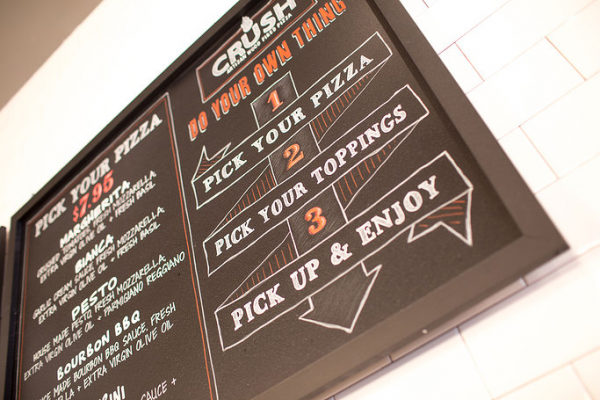 PICK YOUR PIZZA
$7.95
MARGHERITA
CRUSHED TOMATOES, FRESH MOZZARELLA,
EXTRA VIRGIN OLIVE OIL + FRESH BASIL
BIANCA
GARLIC CREAM SAUCE, FRESH MOZZARELLA,
EXTRA VIRGIN OLIVE OIL + FRESH BASIL
PESTO
HOUSE MADE PESTO, FRESH MOZZARELLA,
EXTRA VIRGIN OLIVE OIL + PARMIGIANO REGGIANO
BOURBON BBQ
MADE BOURBON BBQ SAUCE, FRESH
+ EXTRA VIRGIN OLIVE OIL
SAUCE +
CRUSH
ARTISAN WOOD FIRED PIZZA
DO YOUR OWN THING
1
PICK YOUR PIZZA
2
PICK YOUR TOPPINGS
3
PICK UP & ENJOY